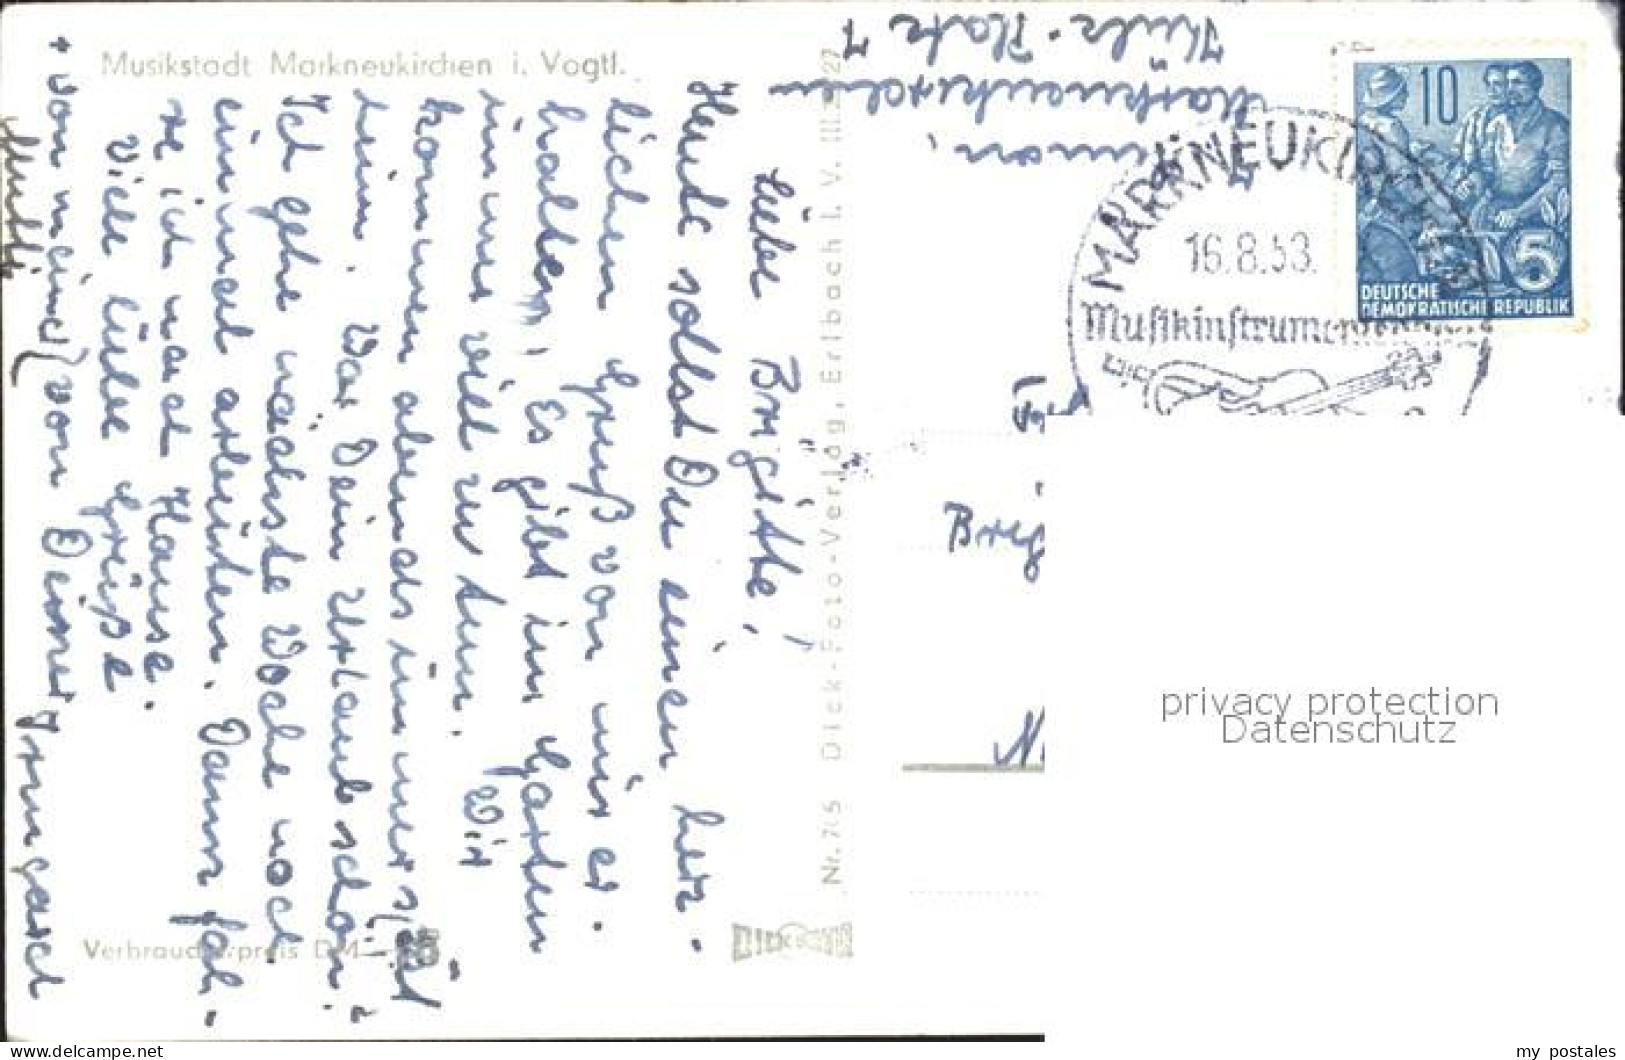 Musikstadt Markneukirchen i. Vogtl.
Liebe Brigitte!
Heute sollst Du einen herz-
lichen Gruß von mir er-
halten. Es gibt im Garten
immer viel zu tun. Wir
kommen abends immer spät
heim. War Dein Urlaub schön?
Ich gehe nächste Woche noch
einmal arbeiten. Dann fah-
re ich nach Hause.
Viele liebe Grüße
von Deiner Irmgard
+ von meiner
Mutti
Verbraucherpreis DM
Nr. 745 Dick-Foto-Verlag, Erlbach i. V.
Markneukirchen
MARKNEUKIRCHEN
16.8.53.
Musikinstrumenten
10
5
DEUTSCHE
DEMOKRATISCHE REPUBLIK
Brig
N
privacy protection
Datenschutz
my postales